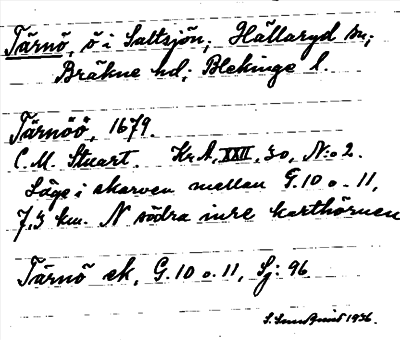 Tärnö, ö i Saltsjön; Hällaryd sn;
Bräkne hd; Blekinge l.
Tärnöö, 1679.
C. M. Stuart. Kr.A, XXII, 30, N:o 2.
Läge i skarven mellan G. 10 o. 11,
7,3 km. N södra inre karthörnen
Tärnö ek, G. 10 o. 11, Sj: 96
1936.